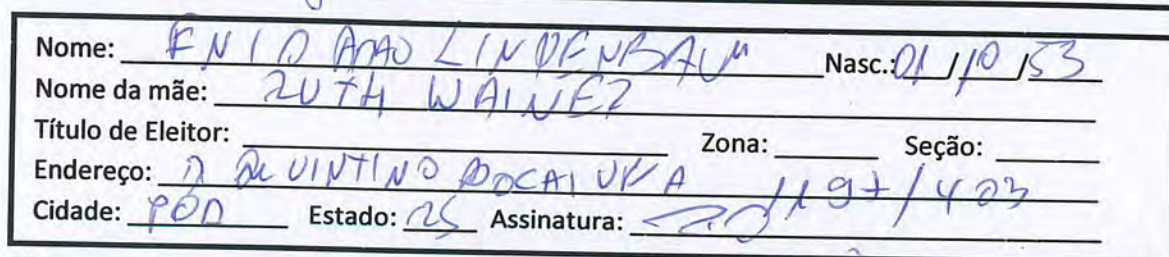 Nome: ENID LINDENBAUM Nasc.: 01/10/53
Nome da mãe: RUTH WAINER
Título de Eleitor: Zona: Seção:
Endereço: R QUINTINO BOCAIUVA 1197/403
Cidade: POA Estado: RS Assinatura: